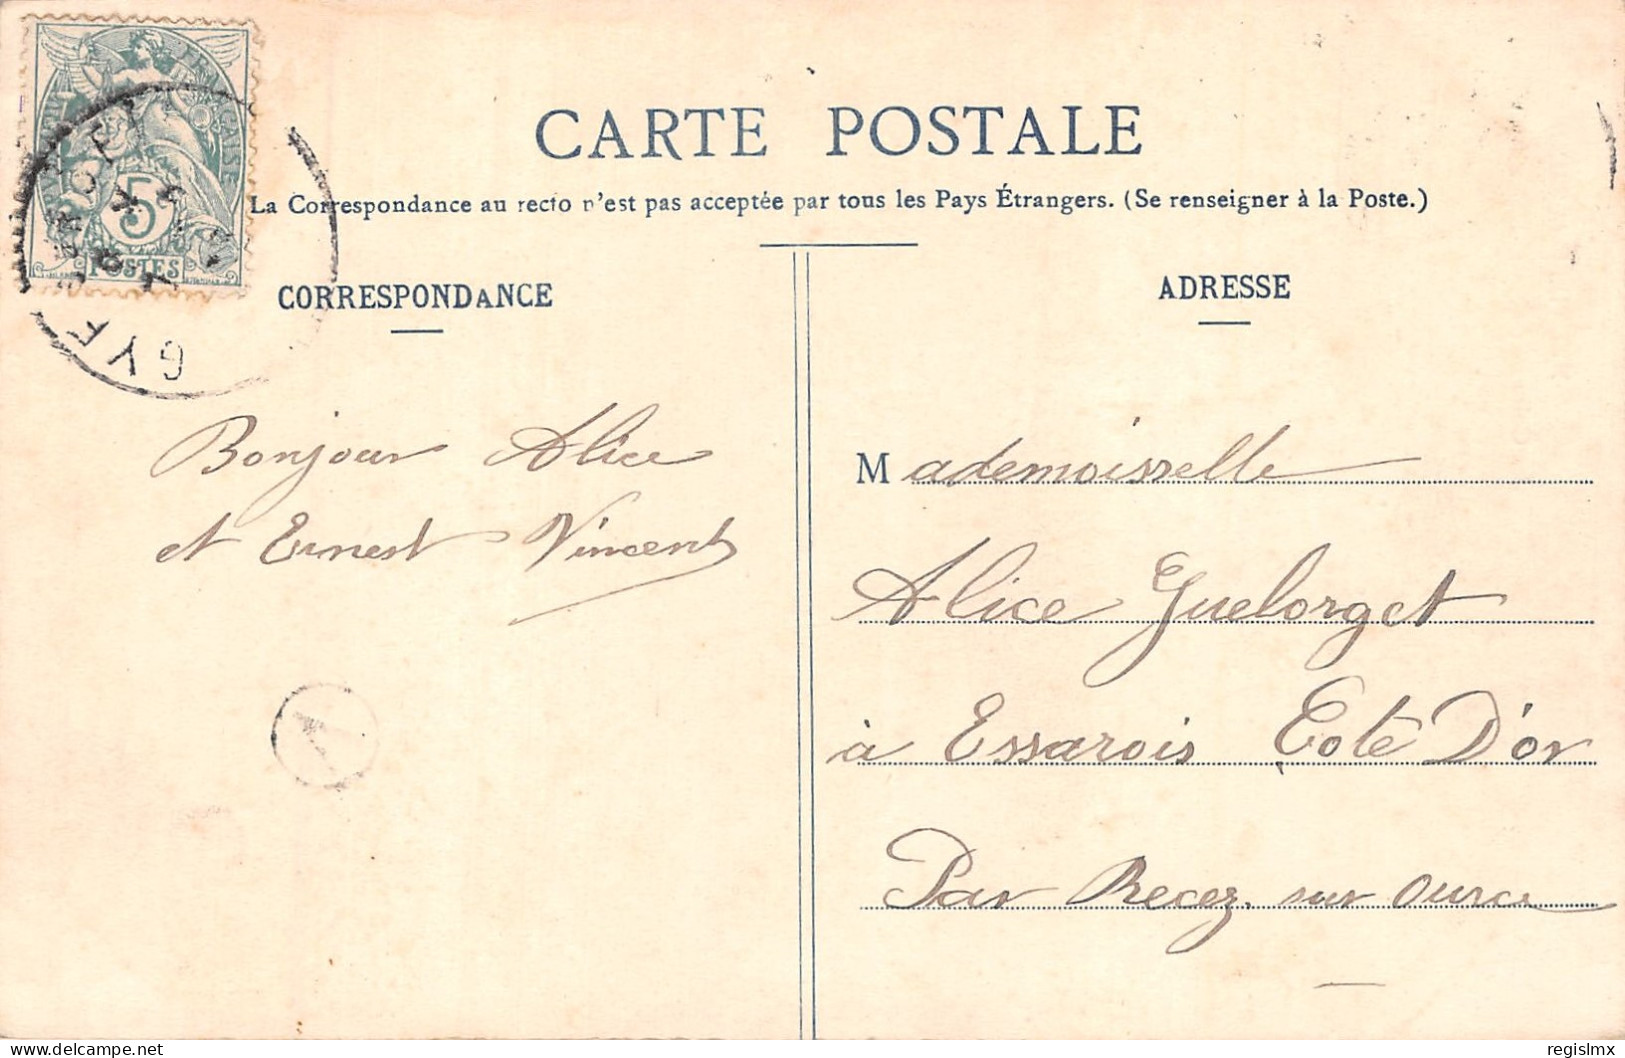 RÉPUBLIQUE FRANÇAISE
5
POSTES
GYÉ
CARTE POSTALE
La Correspondance au recto n'est pas acceptée par tous les Pays Étrangers. (Se renseigner à la Poste.)
CORRESPONDANCE
Bonjour Alice
et Ernest Vincent
A
ADRESSE
Mademoisselle
Alice Guelorget
à Essarois Cote D'or
Par Recez. sur Ource
regislmx